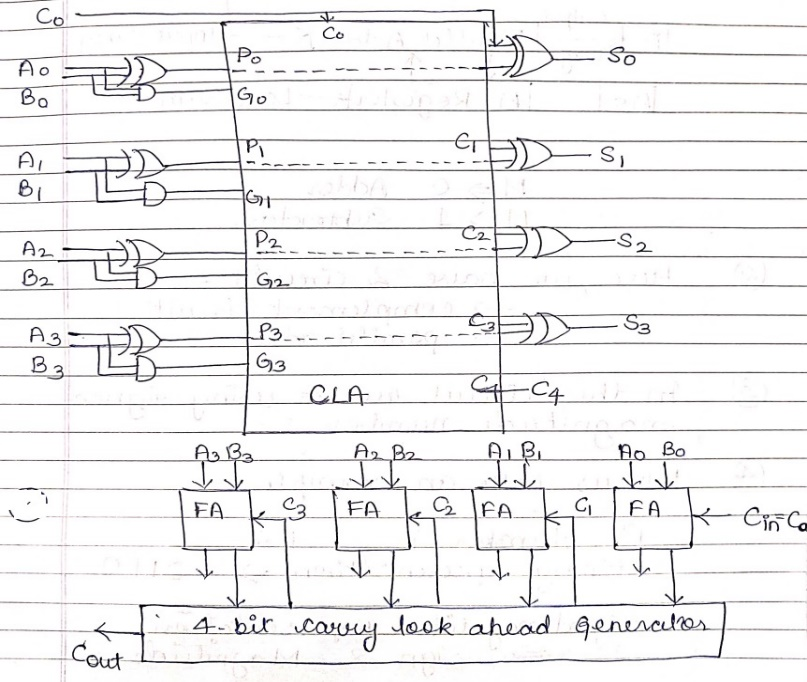 C0
C0
A0
B0
P0
G0
S0
A1
B1
P1
G1
C1
S1
A2
B2
P2
G2
C2
S2
A3
B3
P3
G3
C3
S3
CLA
C4
C4
A3 B3 A2 B2 A1 B1 A0 B0
FA C3 FA C2 FA C1 FA Cin=C0
4-bit carry look ahead generator
Cout